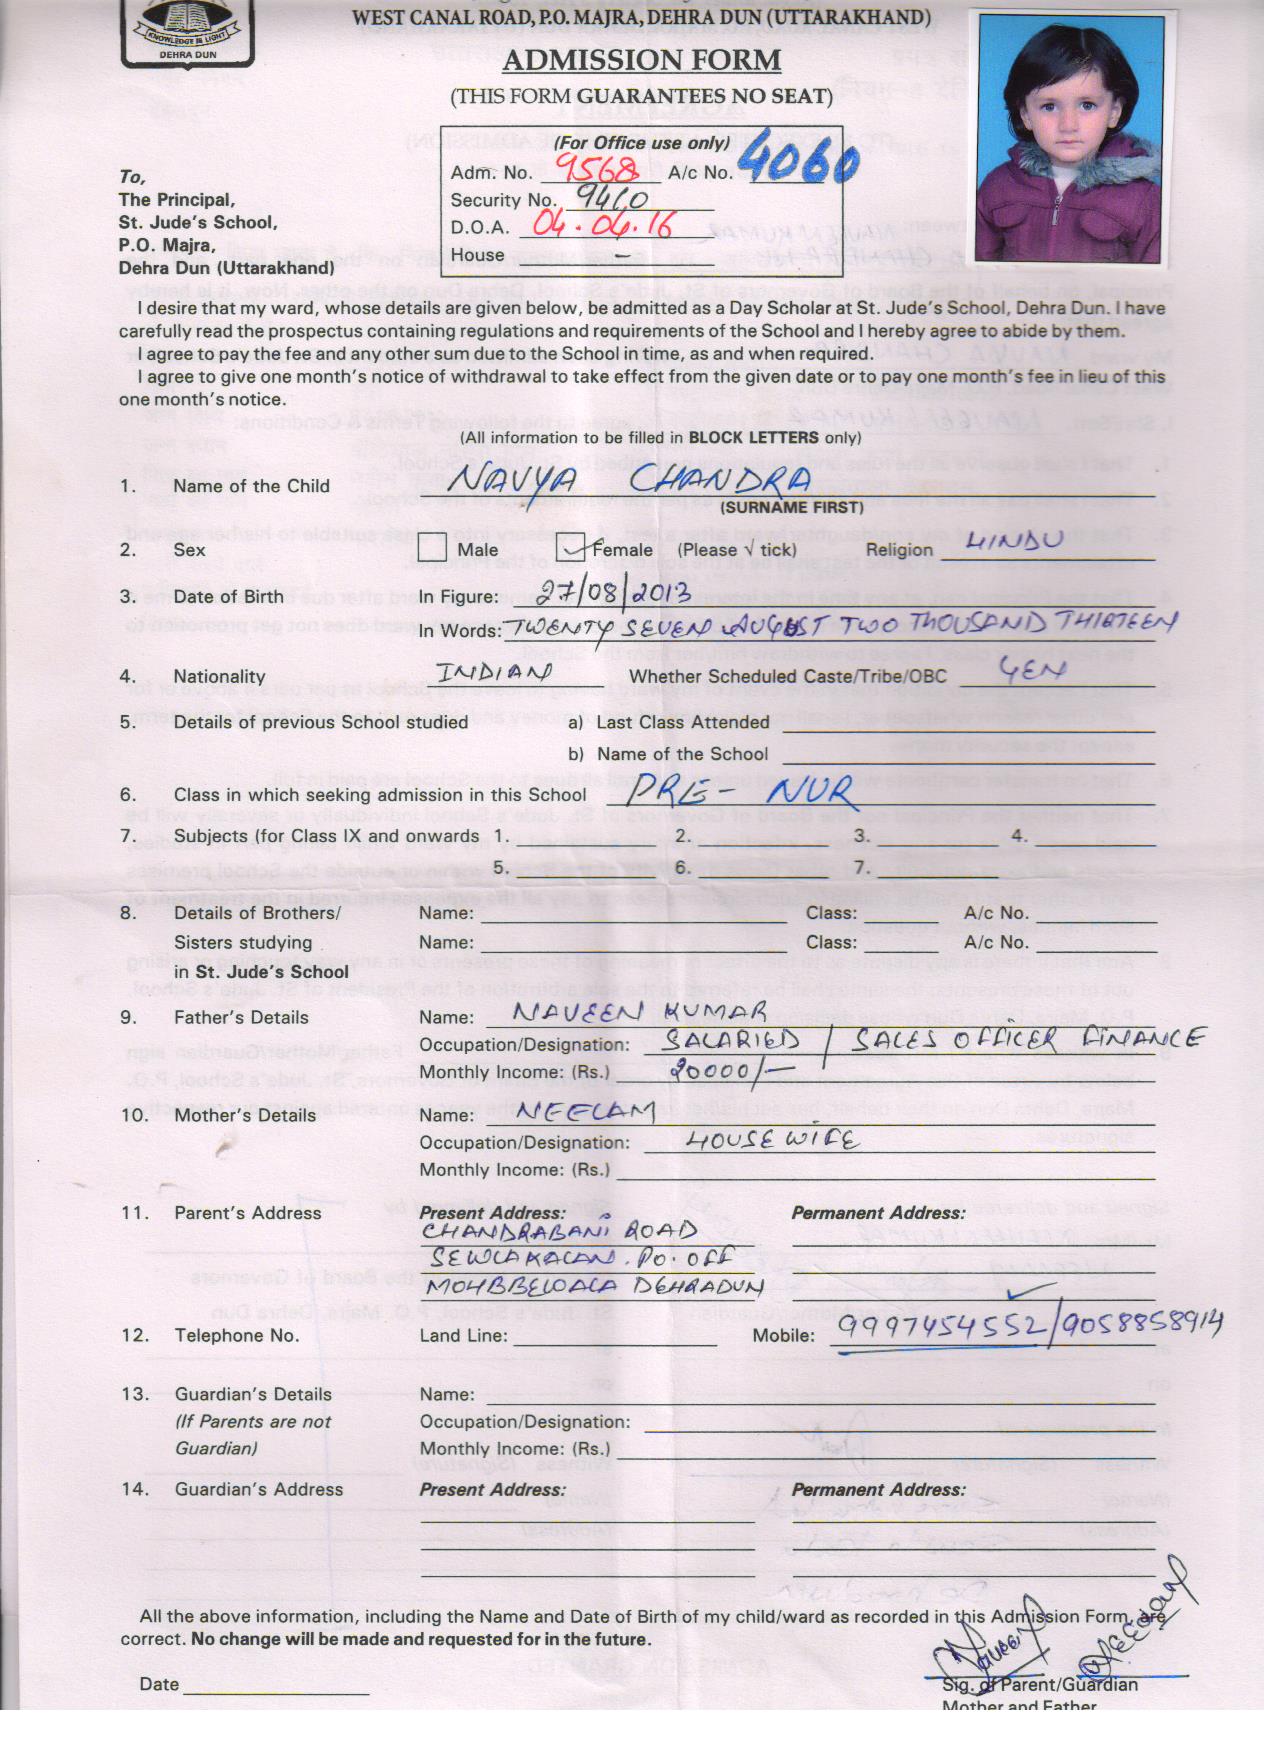 KNOWLEDGE IS LIGHT
DEHRA DUN
WEST CANAL ROAD, P.O. MAJRA, DEHRA DUN (UTTARAKHAND)
ADMISSION FORM
(THIS FORM GUARANTEES NO SEAT)
(For Office use only)
Adm. No. 9568 A/c No. 4060
Security No. 9410
D.O.A. 04.04.16
House –
To,
The Principal,
St. Jude's School,
P.O. Majra,
Dehra Dun (Uttarakhand)
I desire that my ward, whose details are given below, be admitted as a Day Scholar at St. Jude's School, Dehra Dun. I have
carefully read the prospectus containing regulations and requirements of the School and I hereby agree to abide by them.
I agree to pay the fee and any other sum due to the School in time, as and when required.
I agree to give one month's notice of withdrawal to take effect from the given date or to pay one month's fee in lieu of this
one month's notice.
(All information to be filled in BLOCK LETTERS only)
1. Name of the Child NAVYA CHANDRA
(SURNAME FIRST)
2. Sex Male ✓ Female (Please √ tick) Religion HINDU
3. Date of Birth In Figure: 27/08/2013
In Words: TWENTY SEVEN AUGUST TWO THOUSAND THIRTEEN
4. Nationality INDIAN Whether Scheduled Caste/Tribe/OBC GEN
5. Details of previous School studied a) Last Class Attended
b) Name of the School
6. Class in which seeking admission in this School PRE- NUR
7. Subjects (for Class IX and onwards 1. 2. 3. 4.
5. 6. 7.
8. Details of Brothers/ Name: Class: A/c No.
Sisters studying Name: Class: A/c No.
in St. Jude's School
9. Father's Details Name: NAVEEN KUMAR
Occupation/Designation: SALARIED / SALES OFFICER FINANCE
Monthly Income: (Rs.) 20000/-
10. Mother's Details Name: NEELAM
Occupation/Designation: HOUSE WIFE
Monthly Income: (Rs.)
11. Parent's Address Present Address: Permanent Address:
CHANDRABANI ROAD
SEWLAKALAN. PO. OFF
MOHBBEWALA DEHRADUN
12. Telephone No. Land Line: Mobile: 9997454552/9058858914
13. Guardian's Details Name:
(If Parents are not Occupation/Designation:
Guardian) Monthly Income: (Rs.)
14. Guardian's Address Present Address: Permanent Address:
All the above information, including the Name and Date of Birth of my child/ward as recorded in this Admission Form, are
correct. No change will be made and requested for in the future.
Naveen Neelam
Date Sig. of Parent/Guardian
Mother and Father